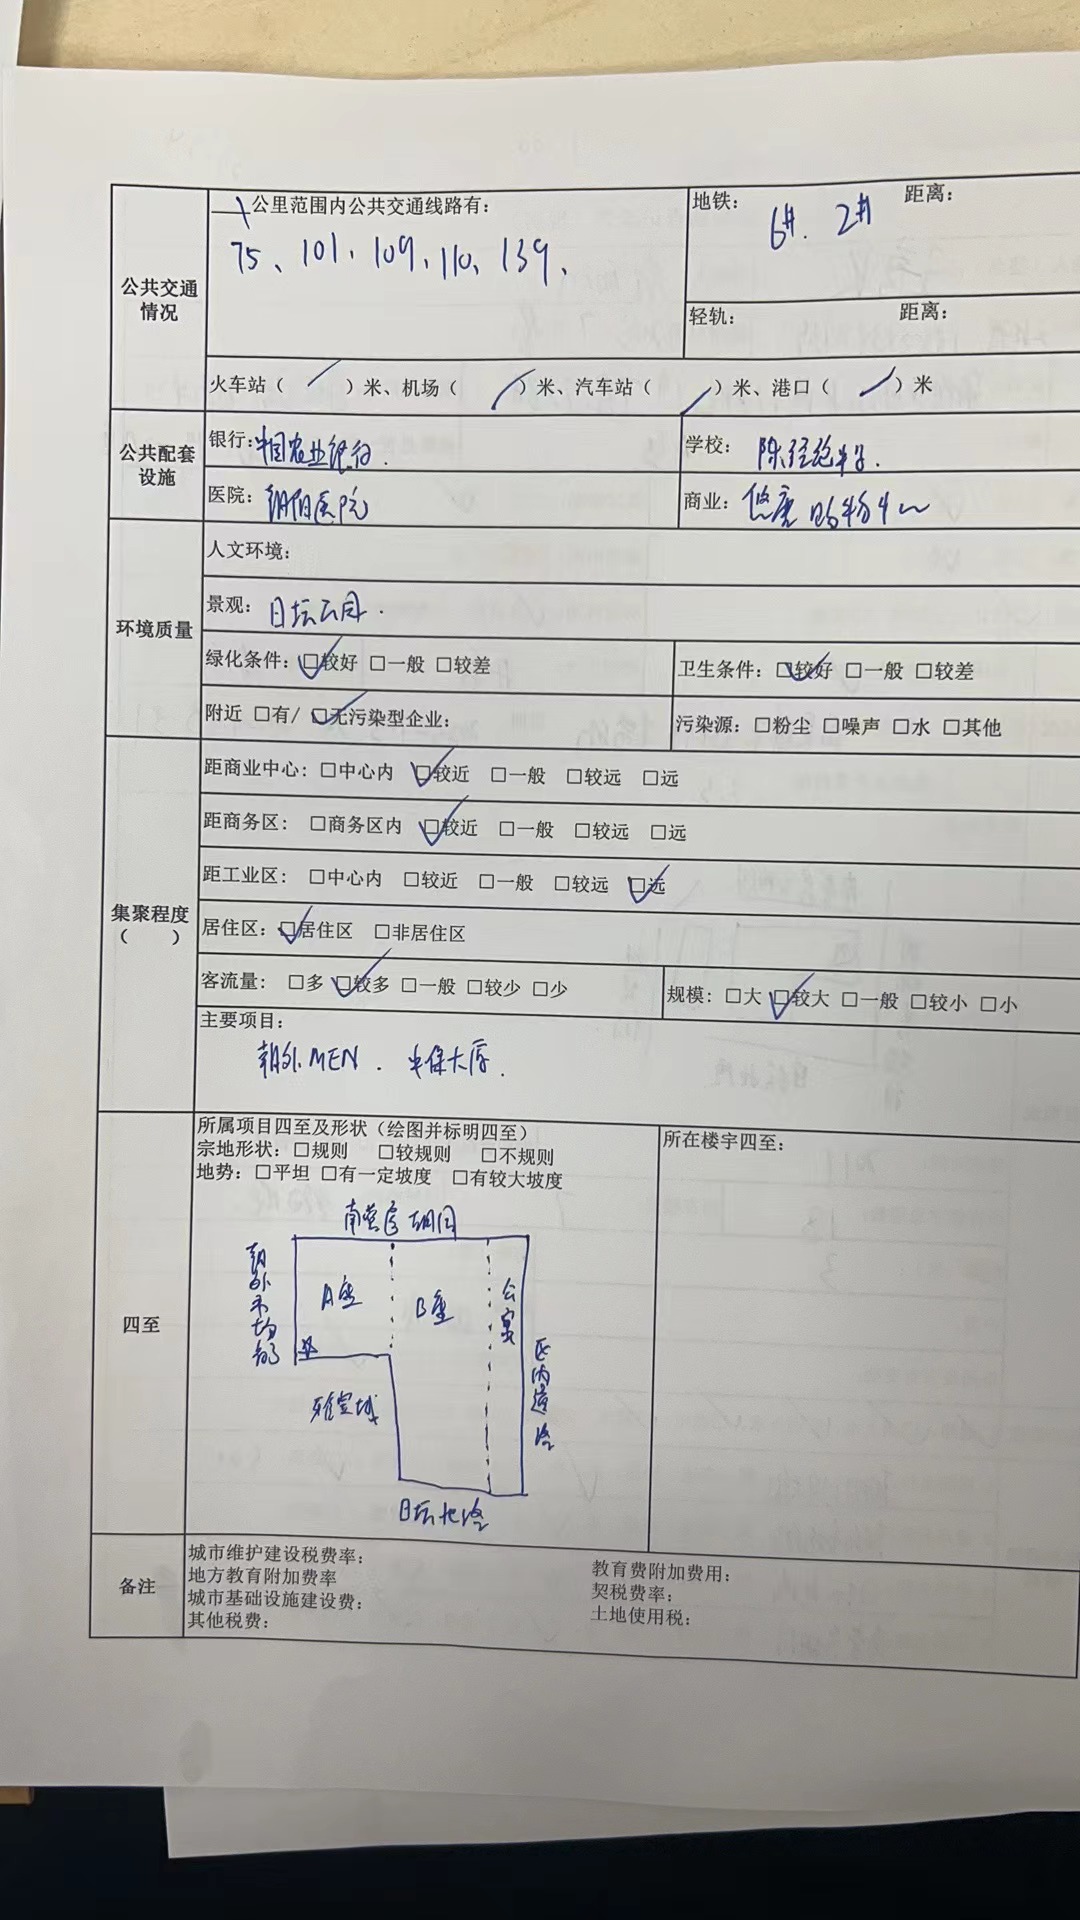 1公里范围内公共交通线路有：
75、101、109、110、139、
地铁： 6#、2# 距离：
公共交通情况
轻轨： 距离：
火车站（ / ）米、机场（ / ）米、汽车站（ / ）米、港口（ / ）米
公共配套设施
银行：中国农业银行.
学校：陈经纶中学.
医院：朝阳医院
商业：悠唐购物中心
环境质量
人文环境：
景观：日坛公园.
绿化条件：☑较好 □一般 □较差
卫生条件：☑较好 □一般 □较差
附近 □有/ ☑无污染型企业：
污染源：□粉尘 □噪声 □水 □其他
集聚程度
（ ）
距商业中心：□中心内 ☑较近 □一般 □较远 □远
距商务区：□商务区内 ☑较近 □一般 □较远 □远
距工业区：□中心内 □较近 □一般 □较远 ☑远
居住区：☑居住区 □非居住区
客流量：□多 ☑较多 □一般 □较少 □少
规模：□大 ☑较大 □一般 □较小 □小
主要项目：
朝外MEN. 中保大厦.
四至
所属项目四至及形状（绘图并标明四至）
宗地形状：□规则 □较规则 □不规则
地势：□平坦 □有一定坡度 □有较大坡度
所在楼宇四至：
南营房胡同
朝外市场街
A座
B座
公寓
区内道路
雅宝城
日坛北路
备注
城市维护建设税费率：
地方教育附加费率
城市基础设施建设费：
其他税费：
教育费附加费用：
契税费率：
土地使用税：